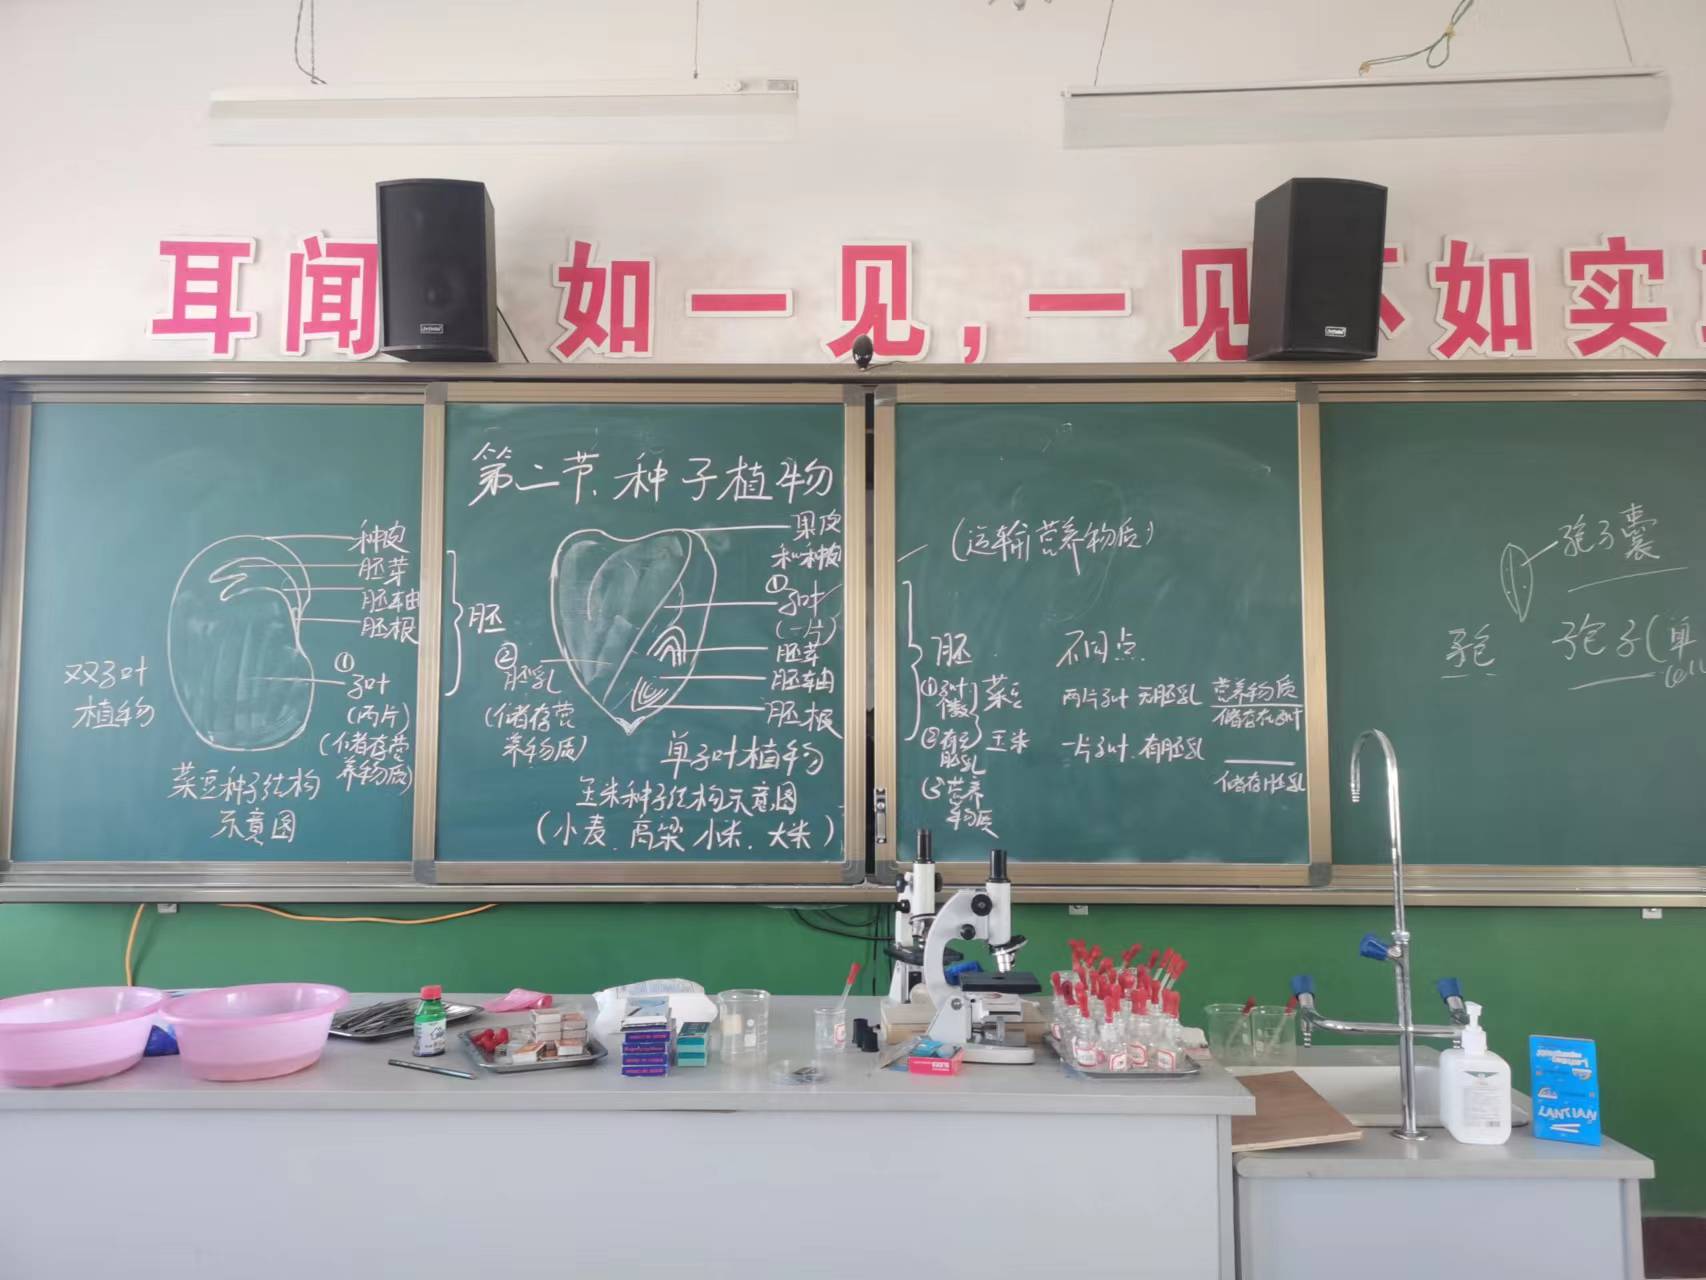 耳闻 如一见,一见不如实
第二节、种子植物
种皮
胚芽
胚轴
胚根
胚
①
子叶
(两片)
(储存营
养物质)
双子叶
植物
菜豆种子结构
示意图
果皮
和种皮
①
子叶
(一片)
胚芽
胚轴
胚根
②
胚乳
(储存营
养物质)
单子叶植物
玉米种子结构示意图
(小麦.高粱.小米.大米)
(运输营养物质)
胚
不同点
①子叶
数
②有无
胚乳
③营养
物质
菜豆 两片子叶 无胚乳 营养物质
储存在子叶
玉米 一片子叶.有胚乳
储存胚乳
孢子囊
孢子(单
LANTIAN